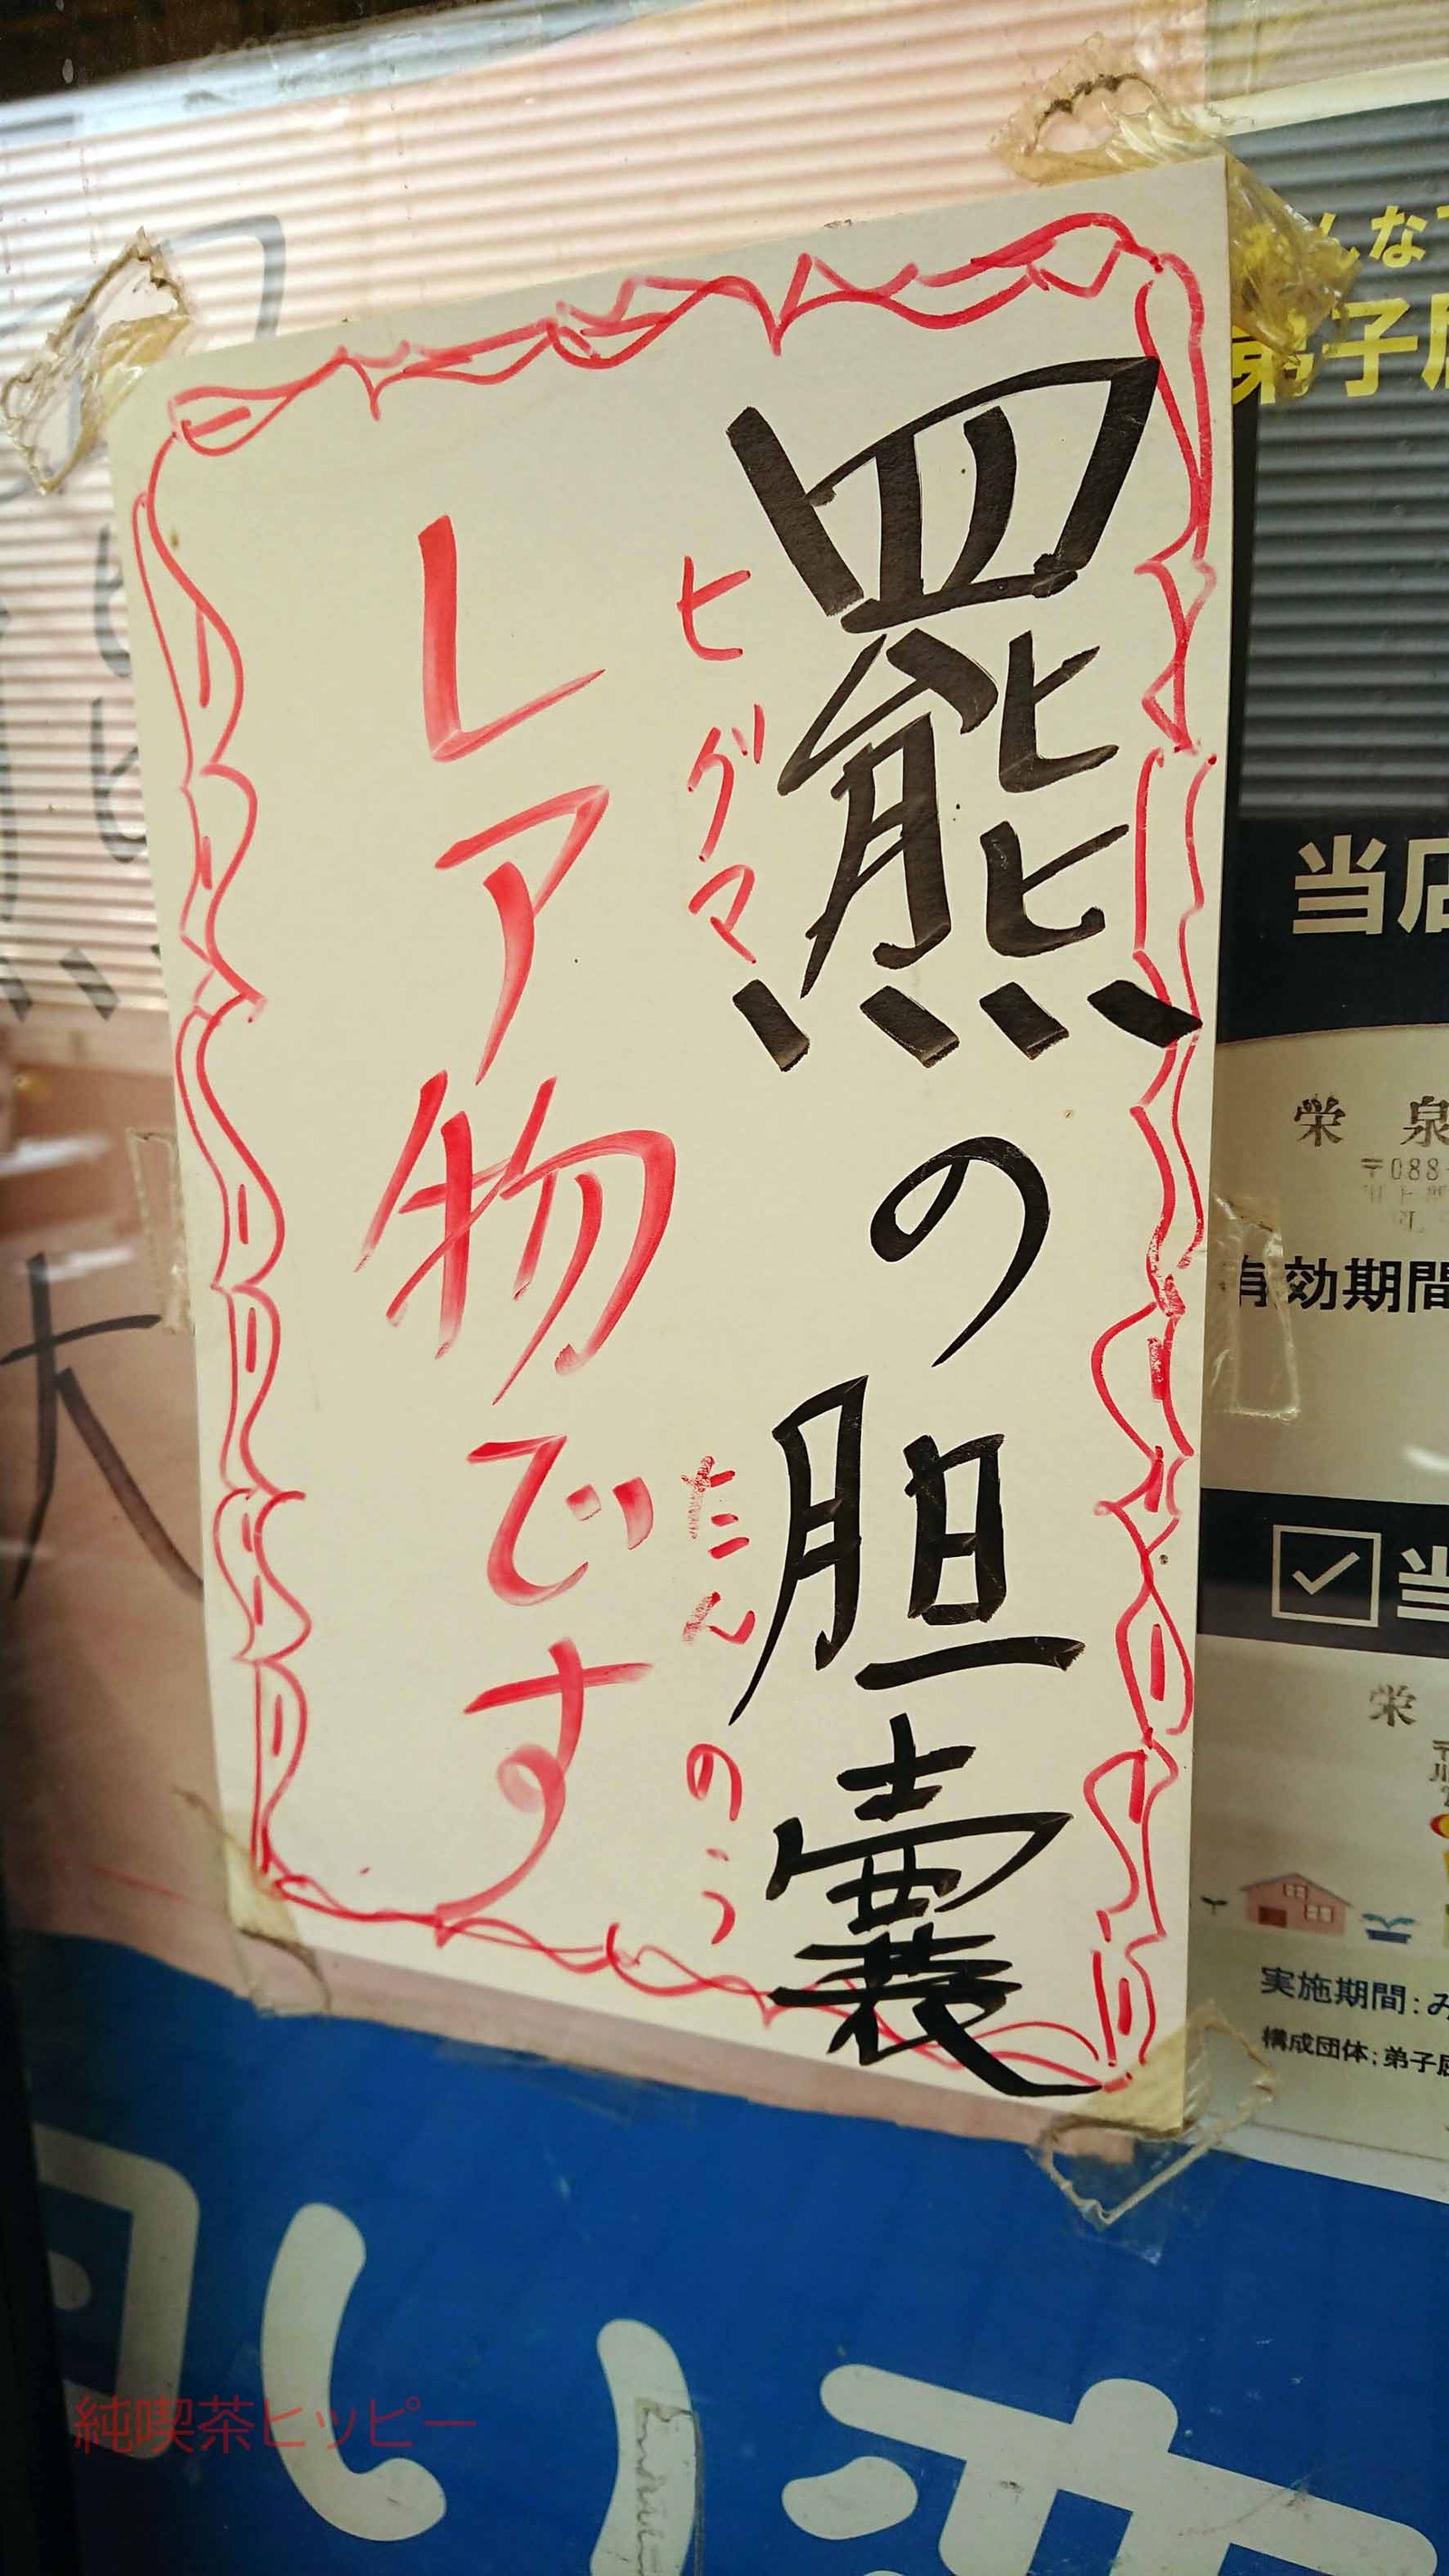 羆の胆嚢
ヒグマ
たんのう
レア物です
んな
弟子
当店
栄 泉
〒088
有効期間
当
栄
実施期間:み
構成団体:弟子屈
大
純喫茶ヒッピー